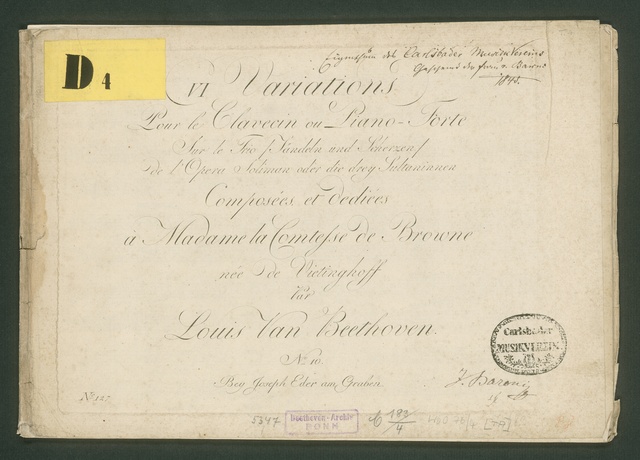 D 4
Eigenthum des Carlsbader Musik Vereins
Geschenk der Frau v.
1845.
VI Variations
Pour le Clavecin ou Piano-Forte
Sur le Trio /: Tändeln und Scherzen :/
de l'Opera Soliman oder die drey Sultaninnen
Composées et dediées
à Madame la Comtesse de Browne
née de Vietinghoff
Par
Louis Van Beethoven.
No. 10.
Bey Joseph Eder am Graben.
Carlsbader
MUSIKVEREIN.
No. 127
5347
Beethoven-Archiv
BONN
C 182/4
WoO 76/